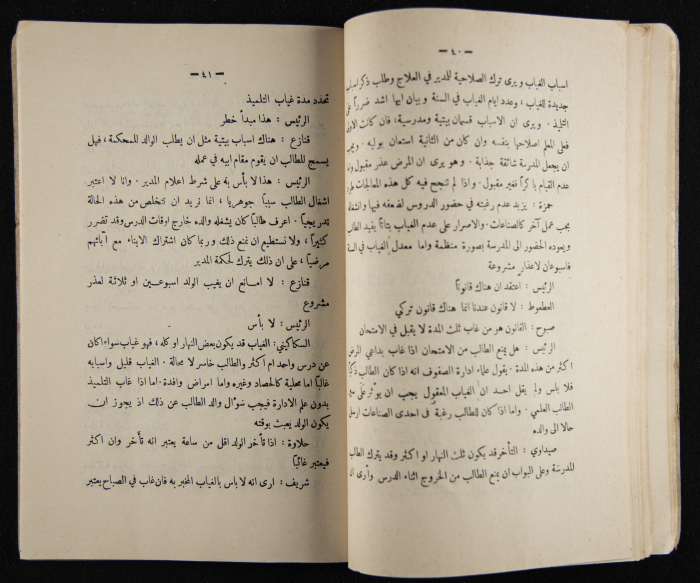 — ٤٠ —
اسباب الغياب ويرى ترك الصلاحية للمدير في العلاج وطلب ذكر اسباب
جديدة للغياب ، وعدد ايام الغياب في السنة وبيان ايها اشد ضرراً على
التلميذ . ويرى ان الاسباب قسمان بيتية ومدرسية ، فان كانت الاولى
فعلى المعلم اصلاحها بنفسه وان كان من الثانية استعان بوليه .
ان يجعل المدرسة شائقة جذابة . وهو يرى ان المرض عذر مقبول
عدم القيام باكراً فغير مقبول . واذا لم تنجح فيه كل هذه المعالجات
حمزة : يزيد عدم رغبته في حضور الدروس لضعفه فيها وانشغاله
يجب عمل آخر كالصناعات . والاصرار على عدم الغياب بتاتاً يفيد الطالب
ويعوده الحضور الى المدرسة بصورة منظمة واما معدل الغياب في السنة
فاسبوعان لاعذار مشروعة
الرئيس : اعتقد ان هناك قانوناً
العطموط : لا قانون عندنا انما هناك قانون تركي
صبوح : القانون هو من غاب ثلث المدة لا يقبل في الامتحان
الرئيس : هل يمنع الطالب من الامتحان اذا غاب بداعي المرض
اكثر من هذه المدة . يقول علماء ادارة الصفوف انه اذا كان الطالب ذكياً
فلا باس ولم يقل احد ان الغياب المعقول يجب ان يوثر على
الطالب العلمي . واما اذا كان للطالب رغبة في احدى الصناعات ارسل
حالا الى والده
صيداوي : التأخر قد يكون ثلث النهار او اكثر وقد يترك الطالب
المدرسة وعلى البواب ان يمنع الطالب من الخروج اثناء الدرس وأرى ان
— ٤١ —
تحدد مدة غياب التلميذ
الرئيس : هذا مبدأ خطر
قنازع : هناك اسباب بيتية مثل ان يطلب الوالد للمحكمة ، فهل
يسمح للطالب ان يقوم مقام ابيه في عمله
الرئيس : هذا لا بأس به على شرط اعلام المدير . وانا لا اعتبر
اشغال الطالب سبباً جوهريا ، انما نريد ان نتخلص من هذه الحالة
تدريجياً . اعرف طالباً كان يشغله والده خارج اوقات الدرس وقد تضرر
كثيراً ، ولا نستطيع ان نمنع ذلك وربما كان اشتراك الابناء مع آبائهم
مرضياً ، على ان ذلك يترك لحكمة المدير
قنازع : لا امانع ان يغيب الولد اسبوعين او ثلاثة لعذر
مشروع
الرئيس : لا بأس
السكاكيني : الغياب قد يكون بعض النهار او كله ، فهو غياب سواء اكان
عن درس واحد ام اكثر والطالب خاسر لا محالة . الغياب قليل واسبابه
غالباً اما محلية كالحصاد وغيره واما امراض وافدة . اما اذا غاب التلميذ
بدون علم الادارة فيجب سؤال والد الطالب عن ذلك اذ يجوز ان
يكون الولد يعبث بوقته
حلاوة : اذا تأخر الولد اقل من ساعة يعتبر انه تأخر وان اكثر
فيعتبر غائباً
شريف : ارى انه لا باس بالغياب المخبر به فان غاب في الصباح يعتبر